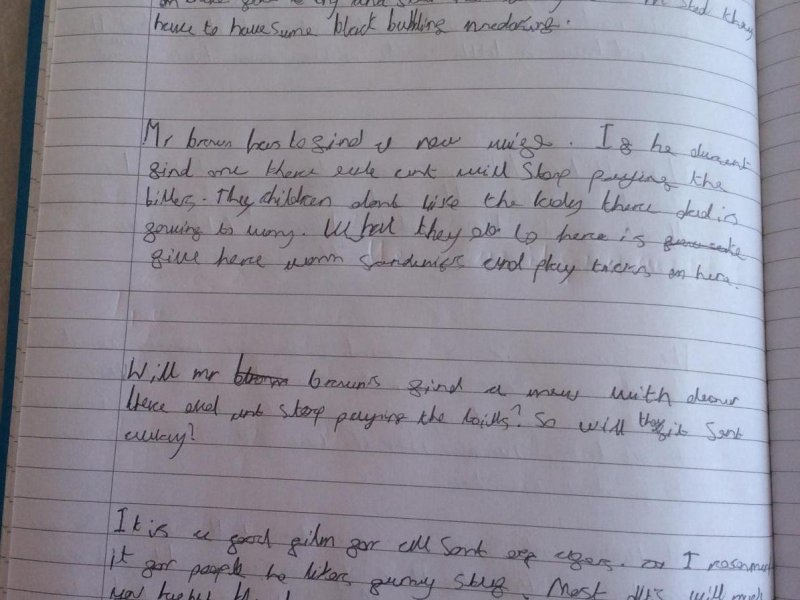 have to have some black bubbling medersing.
Mr brown has to gind a new wige. Ig he dursent
gind one there evle ant will Stop paying the
billers. They children dont like the lady there dad is
gowing to mary. What they do to here is
give here worm Sandwigs and play tricks on here.
Will mr brown brown's gind a new with
there old ant stop paying the bills? So will they Sent
away?
It is a good gilm gor all Sont ages. I
it gor people he likes gunny stug. Most will